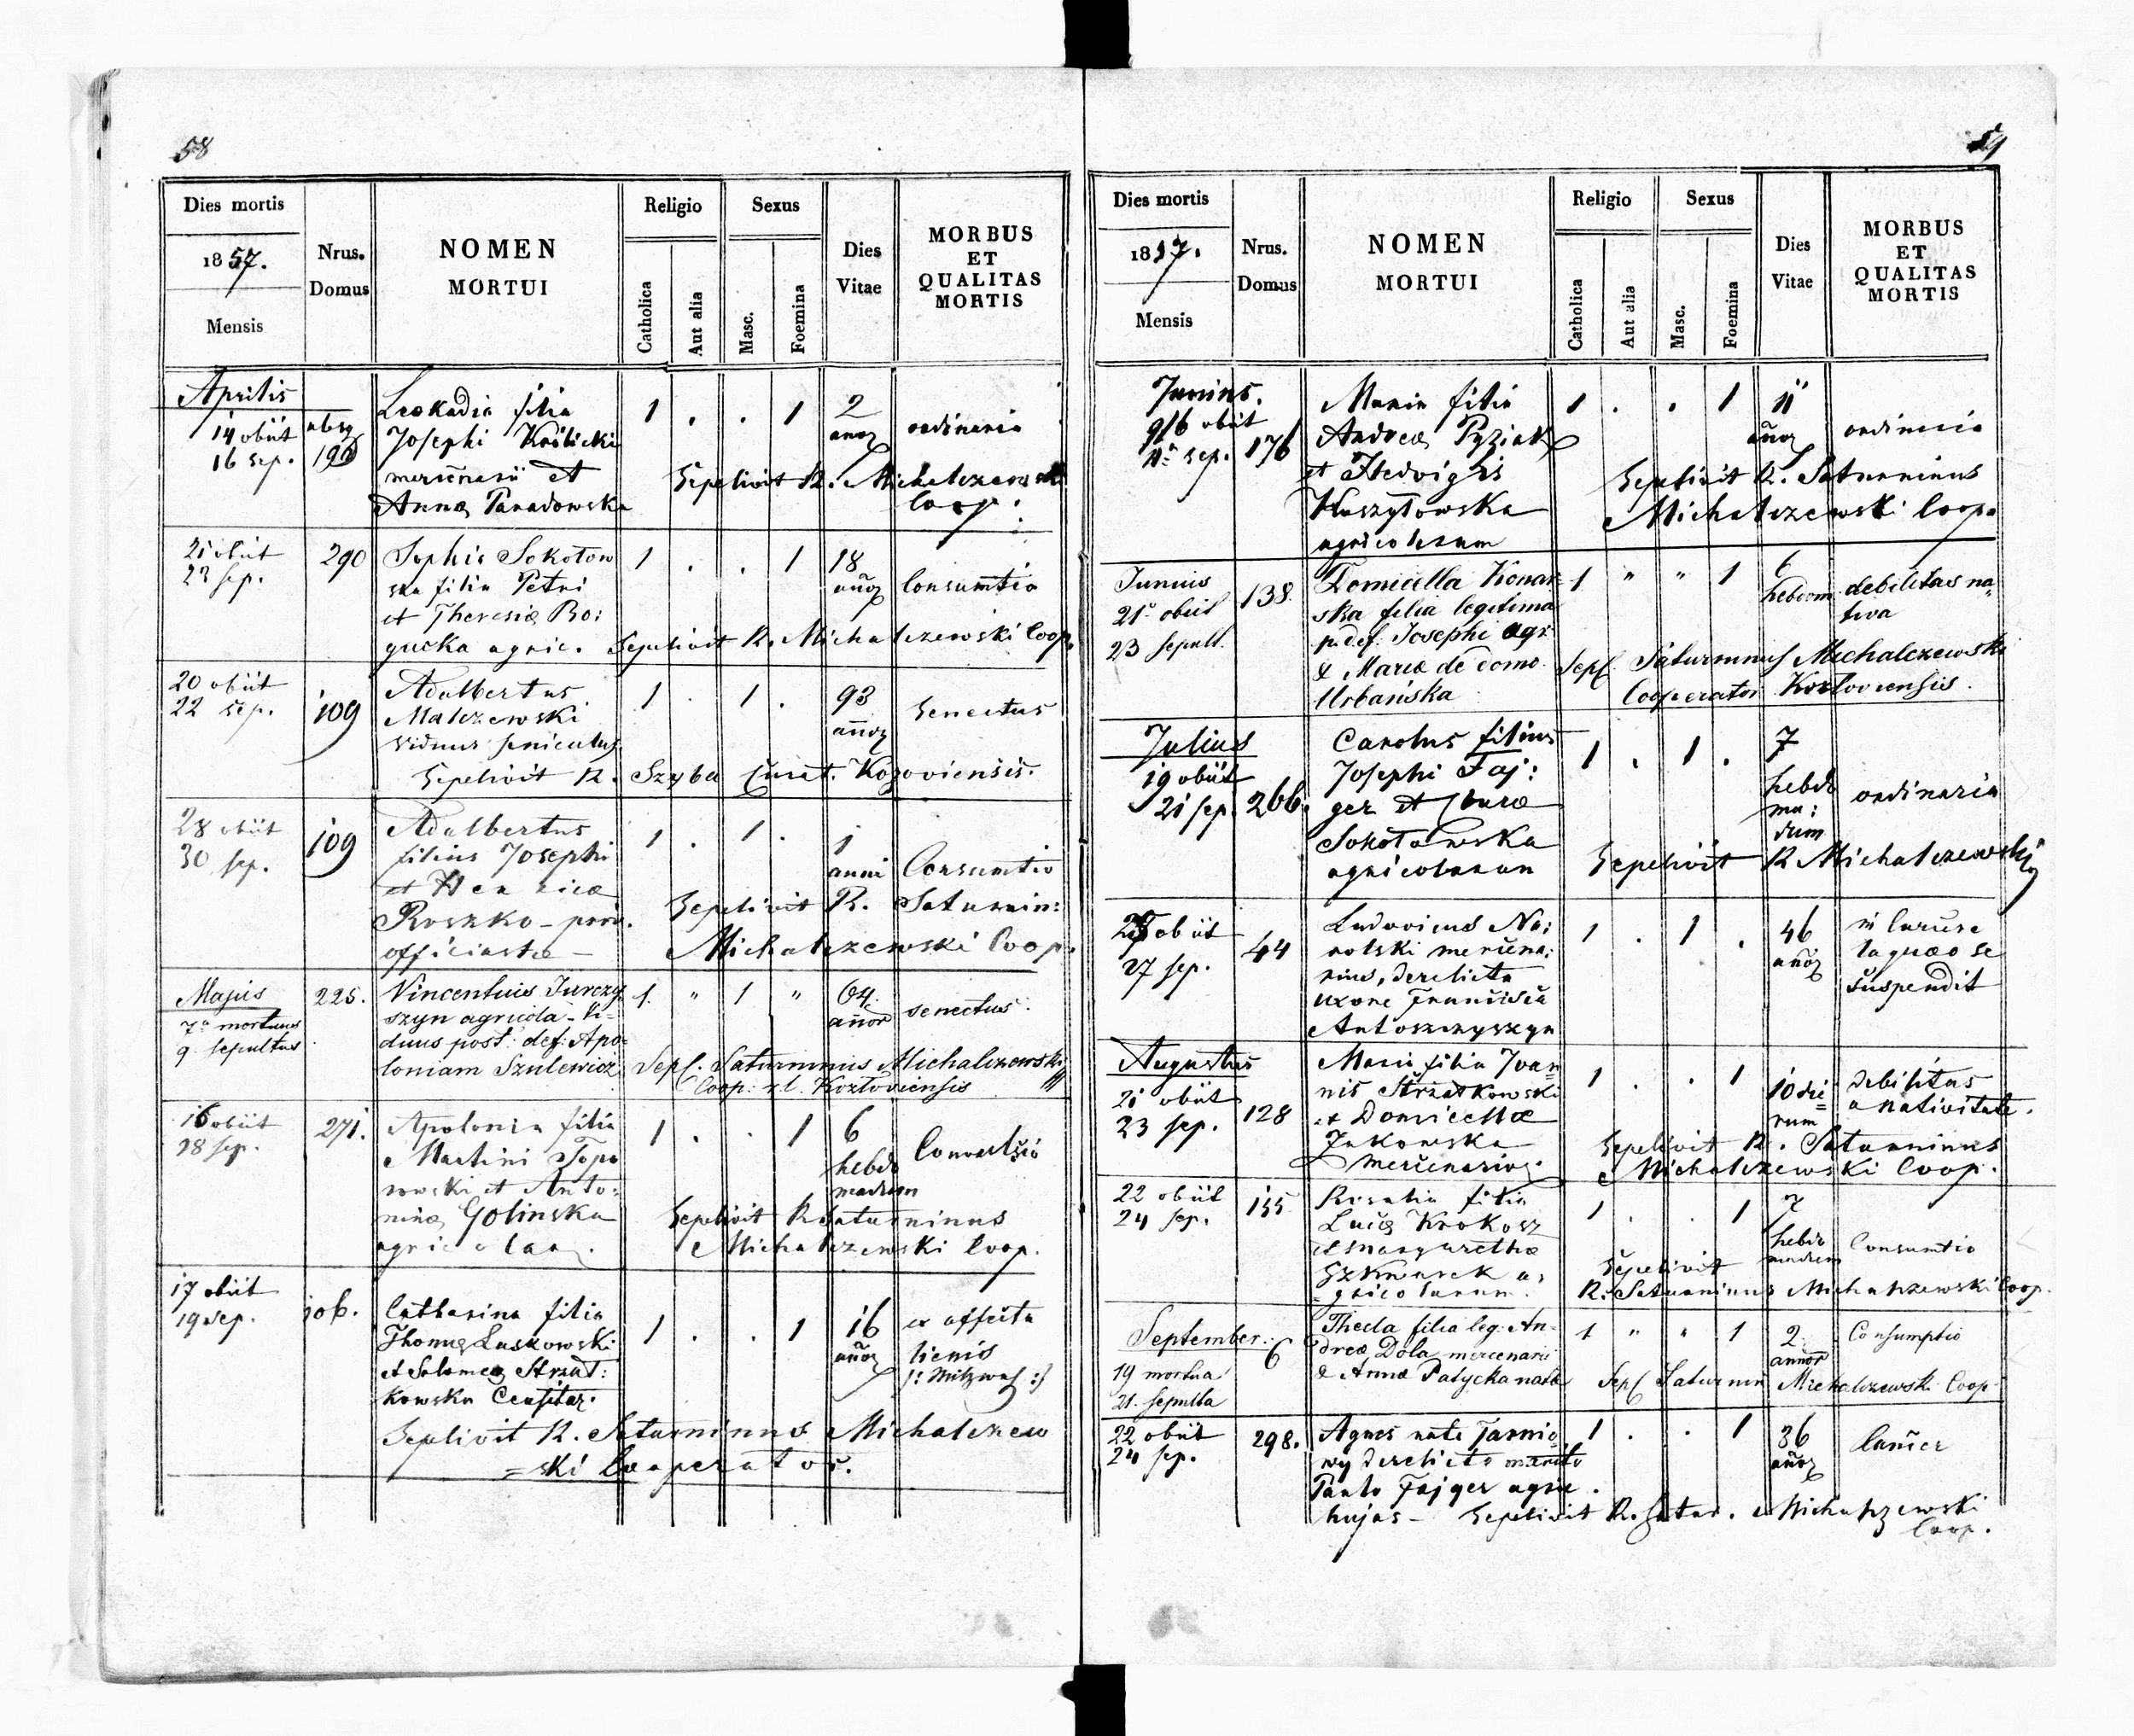 58
Dies mortis
1857.
Mensis
Nrus.
Domus
NOMEN
MORTUI
Religio
Catholica
Aut alia
Sexus
Masc.
Foemina
Dies
Vitae
MORBUS
ET
QUALITAS
MORTIS
Aprilis
14 obiit
16 sep.
Leokadia filia
Josephi
mercenarii et
Anna Paradowska
1 . . 1
2
anor
ordinaria
Sepelivit R. Michalczewski
Coop.
21 obiit
23 sep.
290
Sophia Sokołow
ska filia Petri
et Theresiæ Ro:
gucka agric.
1 . . 1
18
añor
Consumtio
Sepelivit R. Michalczewski Coop.
20 obiit
22 sep.
109
Adalbertus
Malczewski
viduus
1 . 1 .
93
annor
Senectus
Sepelivit R. Szyba Curat. Kozoviensis.
28 obiit
30 sep.
109
Adalbertus
filius Josephi
et
Roszko
officiastæ
1 . 1 .
1
anni
Consumtio
Sepelivit R. Saturnin:
Michalczewski Coop.
Majus
7ª mortuus
9. sepultus
225.
Vincentius Jurczy
szyn agricola - Vi-
duus post def. Apo-
loniam Szulewicz
1. " 1 "
64.
annor
senectus.
Sepl. Saturninus Michalczewski
Coop: r.l. Kozłoviensis
16 obiit
18 sep.
271.
Apolonia filia
Martini Topo
rowski et Anto:
ninæ Golinska
agricolar.
1 . . 1
6
hebdo
madum
Convulsio
Sepelivit R Saturninus
Michalczewski Coop.
17 obiit
19 sep.
106.
Catharina filia
Thomæ Laskowski
et Salomeæ Strzał:
kowska
1 . . 1
16
añor
ex affectu
lienis
Sepelivit R. Saturninus Michalczew
=ski Cooperator.
59
Dies mortis
1857.
Mensis
Nrus.
Domus
NOMEN
MORTUI
Religio
Catholica
Aut alia
Sexus
Masc.
Foemina
Dies
Vitae
MORBUS
ET
QUALITAS
MORTIS
Junius.
obiit
11ª sep.
176
Maria filia
Andreæ Pyziak
et Hedvigis
Kuszytowska
agricolarum
1 . . 1
11
añor
ordinaria
Sepelivit R. Saturninus
Michalczewski Coop.
Junius
21ª obiit
23 sepult.
138.
Domicella Konar-
ska filia legitima
p. def. Josephi agr.
& Mariæ de domo
Urbańska
1 " " 1
6
hebdom.
debilitas na-
tiva
Sepl. Saturninus Michalczewski
Cooperator Kozłoviensis.
Julius
19 obiit
21 sep.
266.
Carolus filius
Josephi Faj:
ger et Claræ
Sokołowska
agricolarum
1 . 1 .
7
hebdo
ma:
dum
ordinaria
Sepelivit R Michalczewski
25 obiit
27 sep.
44
Ludovicus Na:
rolski mercena:
rius, derelicta
uxore Francisca
Antoszczyszyn
1 . 1 .
46
añor
laqueo se
suspendit
Augustus
21 obiit
23 sep.
128
Maria filia Joan
nis Strzałkowski
et Domicellæ
Jukowska
mercenarior.
1 . . 1
10 die=
rum
debilitas
a nativitate.
Sepelivit R. Saturninus
Michalczewski Coop.
22 obiit
24 sep.
155
Rosalia filia
Lucæ Krokosz
et Margarethæ
Szkwarek a,
gricolarum.
1 . . 1
7
hebdo
madum
Consumtio
Sepelivit
R. Saturninus Michalczewski Coop.
September.
19 mortua
21. sepulta
6
Thecla filia leg. An-
dreæ Dola mercenarii
& Annæ Patycka natæ
1 " " 1
2.
annor
Consumptio
Sepl Saturnin Michalczewski Coop
22 obiit
24 sep.
298.
Agnes nata Tarnio
wy derelicto marito
Paulo Fajger agric.
hujas - Sepelivit R. Satur. Michalczewski
Coop.
1 . . 1
36
añor
Cancer